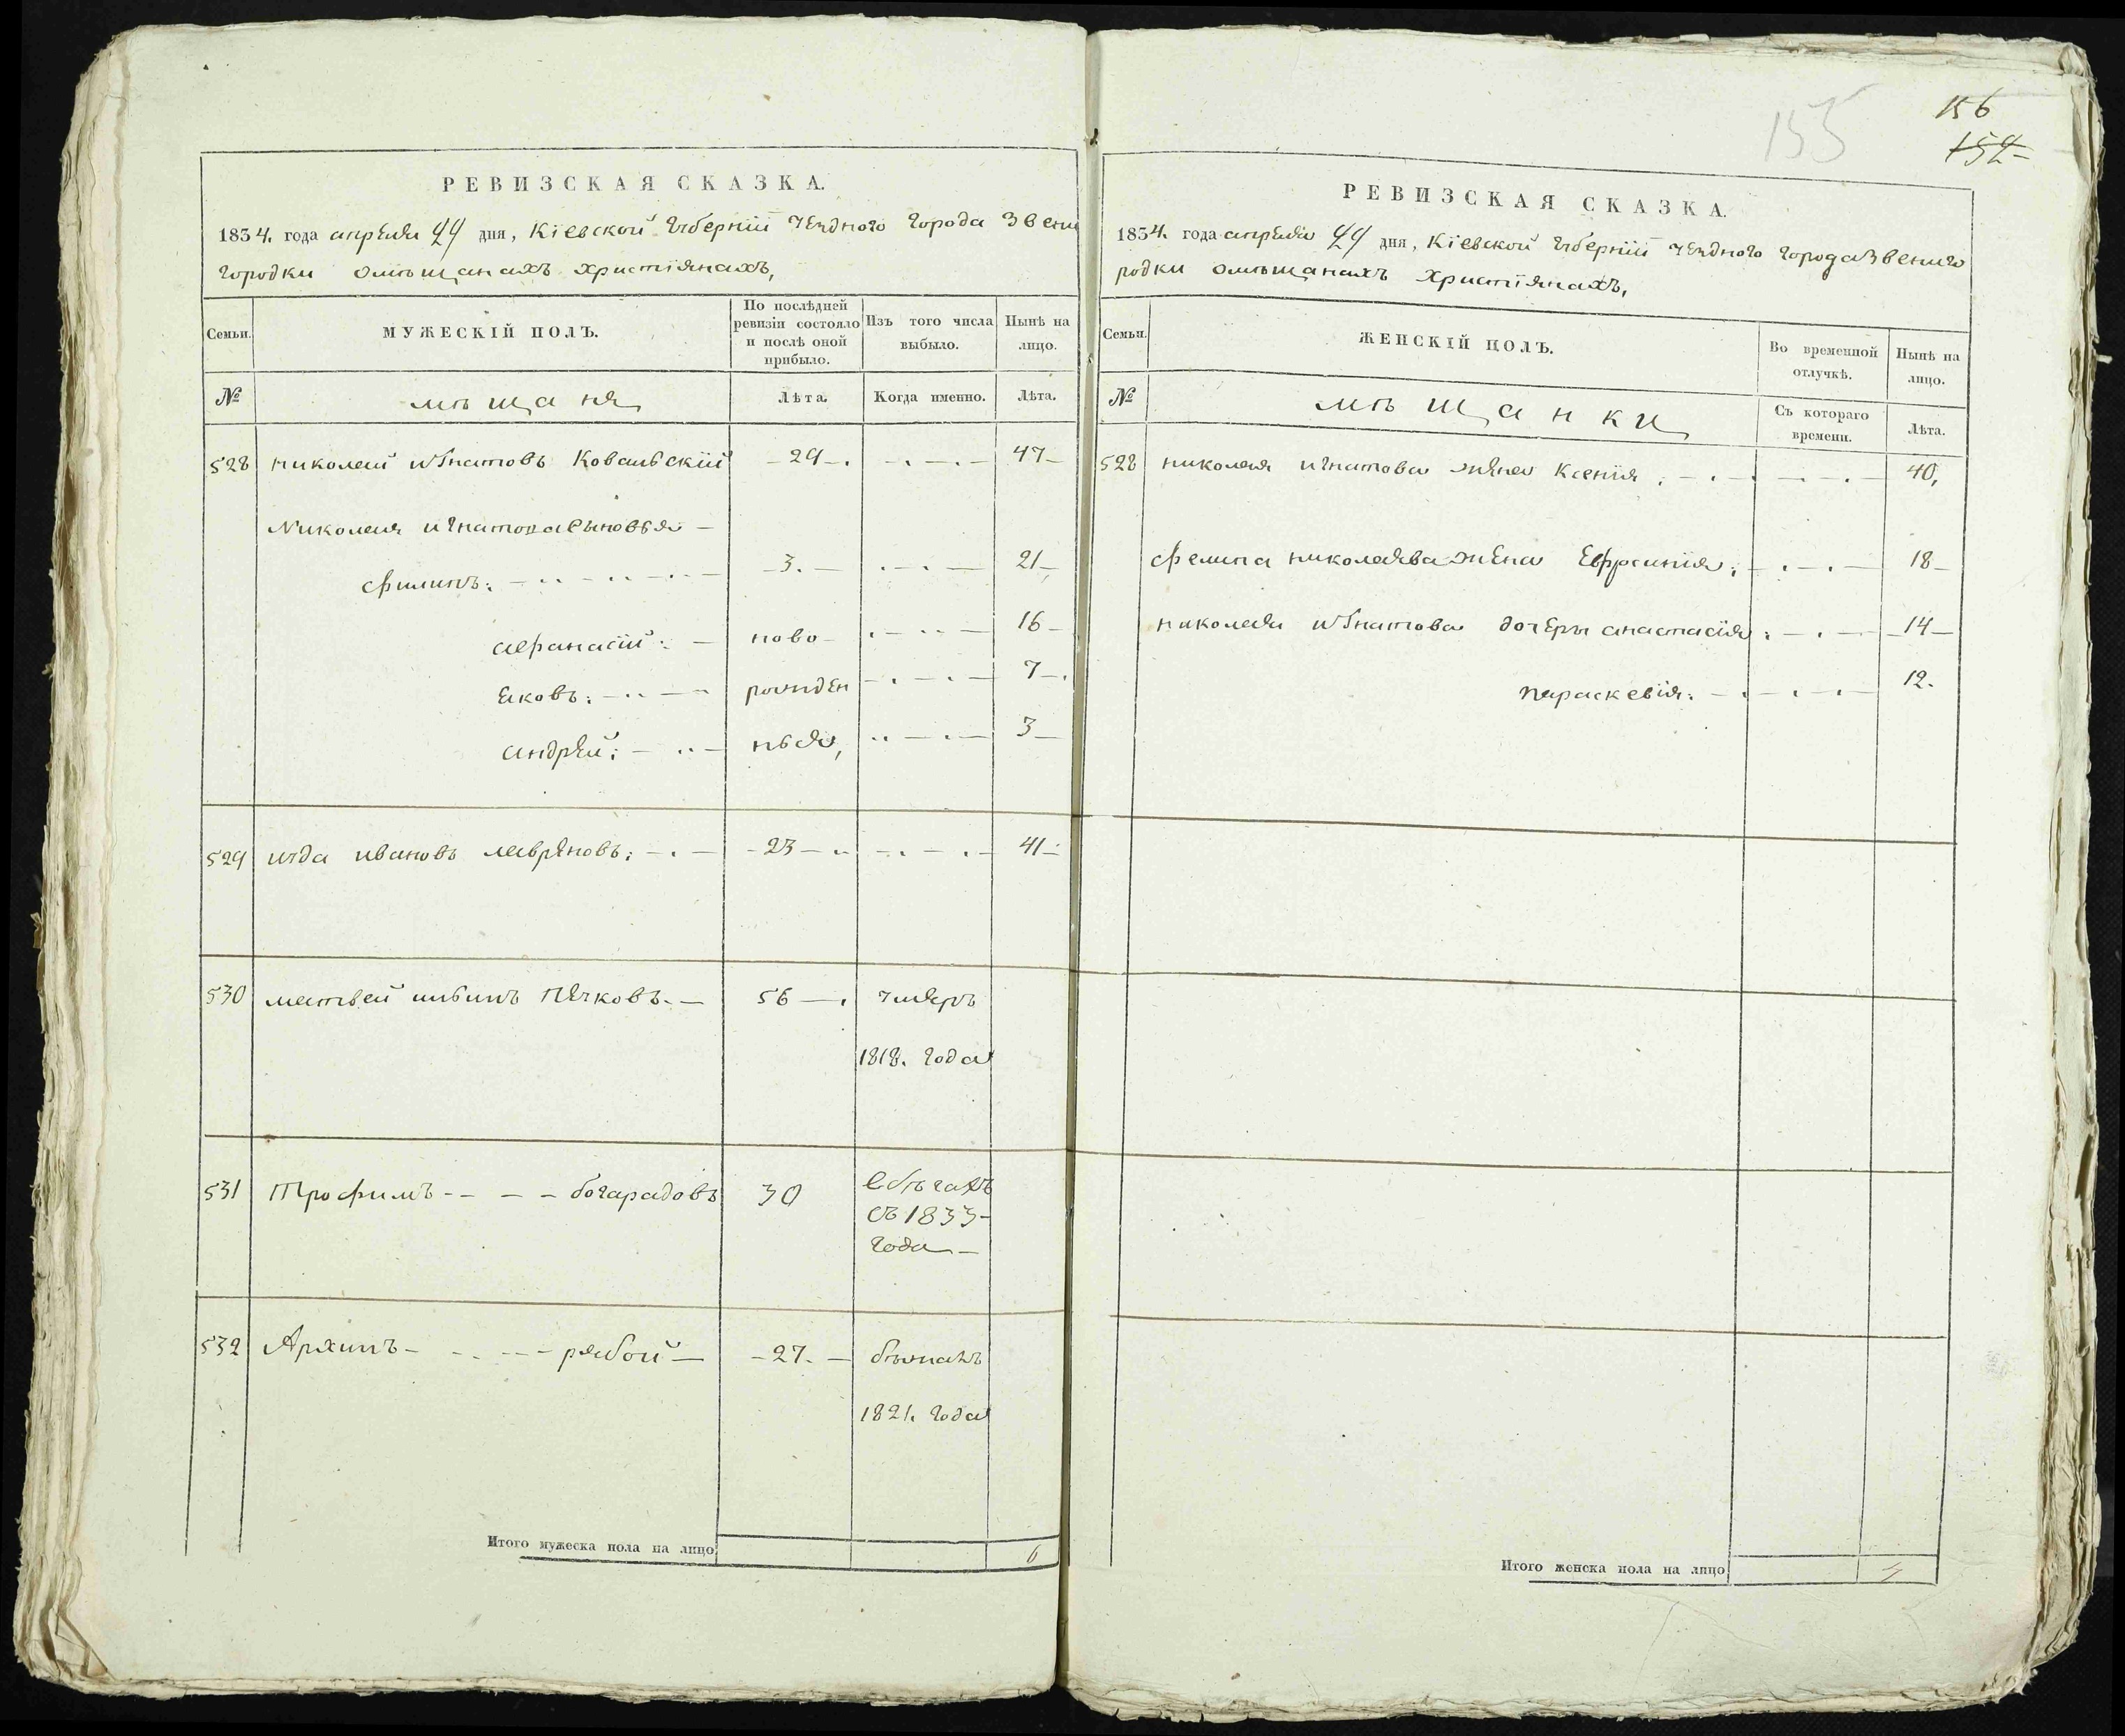 155
156
152
РЕВИЗСКАЯ СКАЗКА.
1834. года апреля 24 дня, Кіевской Губерніи уезднаго города Звени
городки омѣщанахъ христіянахъ,
Семьи.
МУЖЕСКІЙ ПОЛЪ.
По послѣдней ревизіи состояло и послѣ оной прибыло.
Изъ того числа выбыло.
Нынѣ на лицо.
№
мѣщаня
Лѣта.
Когда именно.
Лѣта.
528 николай игнатовъ Ковальскій 29 47
Николая игнатова сыновья
филипъ: 3. 21
афанасій: ново 16
Яковъ: рожден 7
андрей: нься, 3
529 ивановъ 23 41
530 матвей 56 умеръ
1818. года
531 Трофимъ богарадовъ 30 вбѣгахъ
съ 1833
года
532 Архипъ рябой 27. бѣжалъ
1821. года
Итого мужеска пола на лицо 6
РЕВИЗСКАЯ СКАЗКА.
1834. года апреля 24 дня, Кіевской Губерніи уезднаго города Звениго
родки омѣщанахъ христіянахъ,
Семьи.
ЖЕНСКІЙ ПОЛЪ.
Во временной отлучкѣ.
Нынѣ на лицо.
№
мѣщанки
Съ котораго времени.
Лѣта.
528 николая игнатова жена Ксенія 40,
Филипа николаева жена Ефросинія 18
николая игнатова дочери анастасія 14
параскевія 12.
Итого женска пола на лицо 4